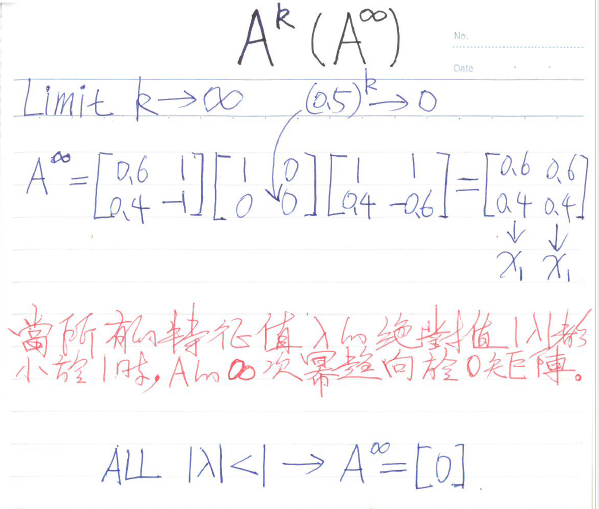 A^k (A^∞)
No.
Date
Limit k→∞ (0.5)^k→0
A^∞ = [0.6 1; 0.4 -1] [1 0; 0 0] [1 1; 0.4 -0.6] = [0.6 0.6; 0.4 0.4]
↓ ↓
x₁ x₁
當所有的特征值λ的绝對值|λ|都
小於1時，A的∞次冪趨向於0矩陣。
ALL |λ|<1 → A^∞=[0]